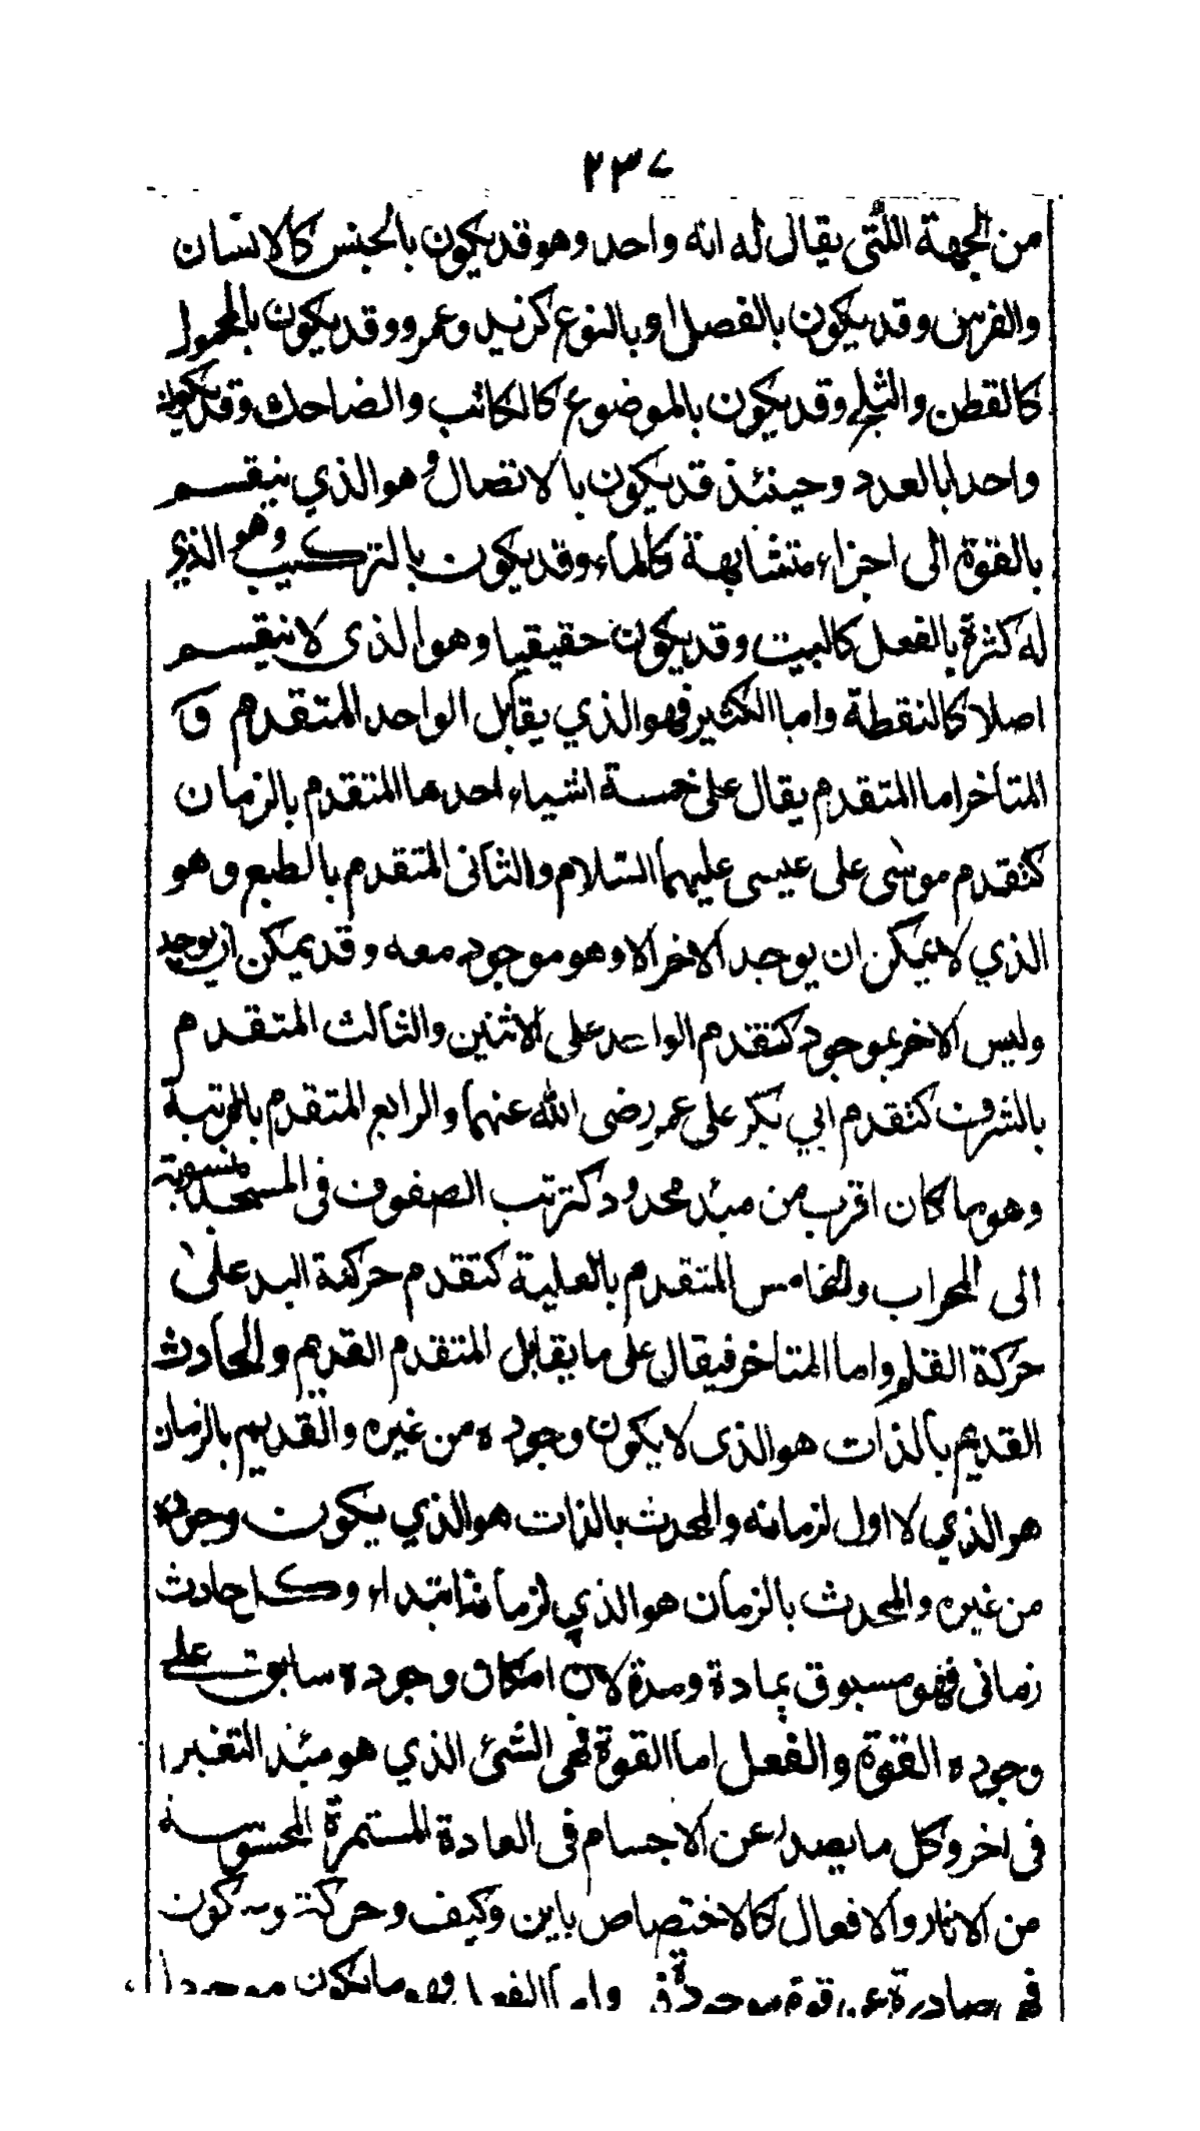 ٢٣٧
من الجهة اللتى يقال له انه واحد وهو قد يكون بالجنس كالانسان
والفرس وقد يكون بالفصل او بالنوع كزيد وعمرو وقد يكون بالمحمول
كالقطن والثلج وقد يكون بالموضوع كالكاتب والضاحك وقد يكون
واحدا بالعدد وحينئذ قد يكون بالاتصال وهو الذي ينقسم
بالقوة الى اجزاء متشابهة كالماء وقد يكون بالتركيب وهو الذي
له كثرة بالفعل كالبيت وقد يكون حقيقيا وهو الذى لا ينقسم
اصلا كالنقطة واما الكثير فهو الذي يقابل الواحد المتقدم و
المتأخر اما المتقدم يقال على خمسة اشياء احدها المتقدم بالزمان
كتقدم موسٰى على عيسى عليهما السّلام والثانى المتقدم بالطبع وهو
الذي لا يمكن ان يوجد الاخر الا وهو موجود معه وقد يمكن ان يوجد
وليس الاخر بموجود كتقدم الواحد على الاثنين والثالث المتقدم
بالشرف كتقدم ابي بكر على عمر رضى الله عنهما والرابع المتقدم بالمرتبة
وهو ما كان اقرب من مبدء محدود كترتب الصفوف فى المسجد منسوبة
الى المحراب والخامس المتقدم بالعلية كتقدم حركة اليد علىٰ
حركة القلم واما المتاخر فيقال على ما يقابل المتقدم القديم والحادث
القديم بالذات هو الذى لا يكون وجوده من غيره والقديم بالزمان
هو الذي لا اول لزمانه والمحدث بالذات هو الذي يكون وجوده
من غيره والمحدث بالزمان هو الذي لزمانه ابتداء وكل حادث
زمانى فهو مسبوق بمادة ومدة لان امكان وجوده سابق على
وجوده القوة والفعل اما القوة فهى الشئ الذي هو مبدء التغير
فى اخر وكل ما يصدر عن الاجسام فى العادة المستمرة المحسوسة
من الاثار والافعال كالاختصاص باين وكيف وحركة وسكون
فهى صادرة عن قوة موجودة فيه واما الفعل فهو ما يكون موجودا